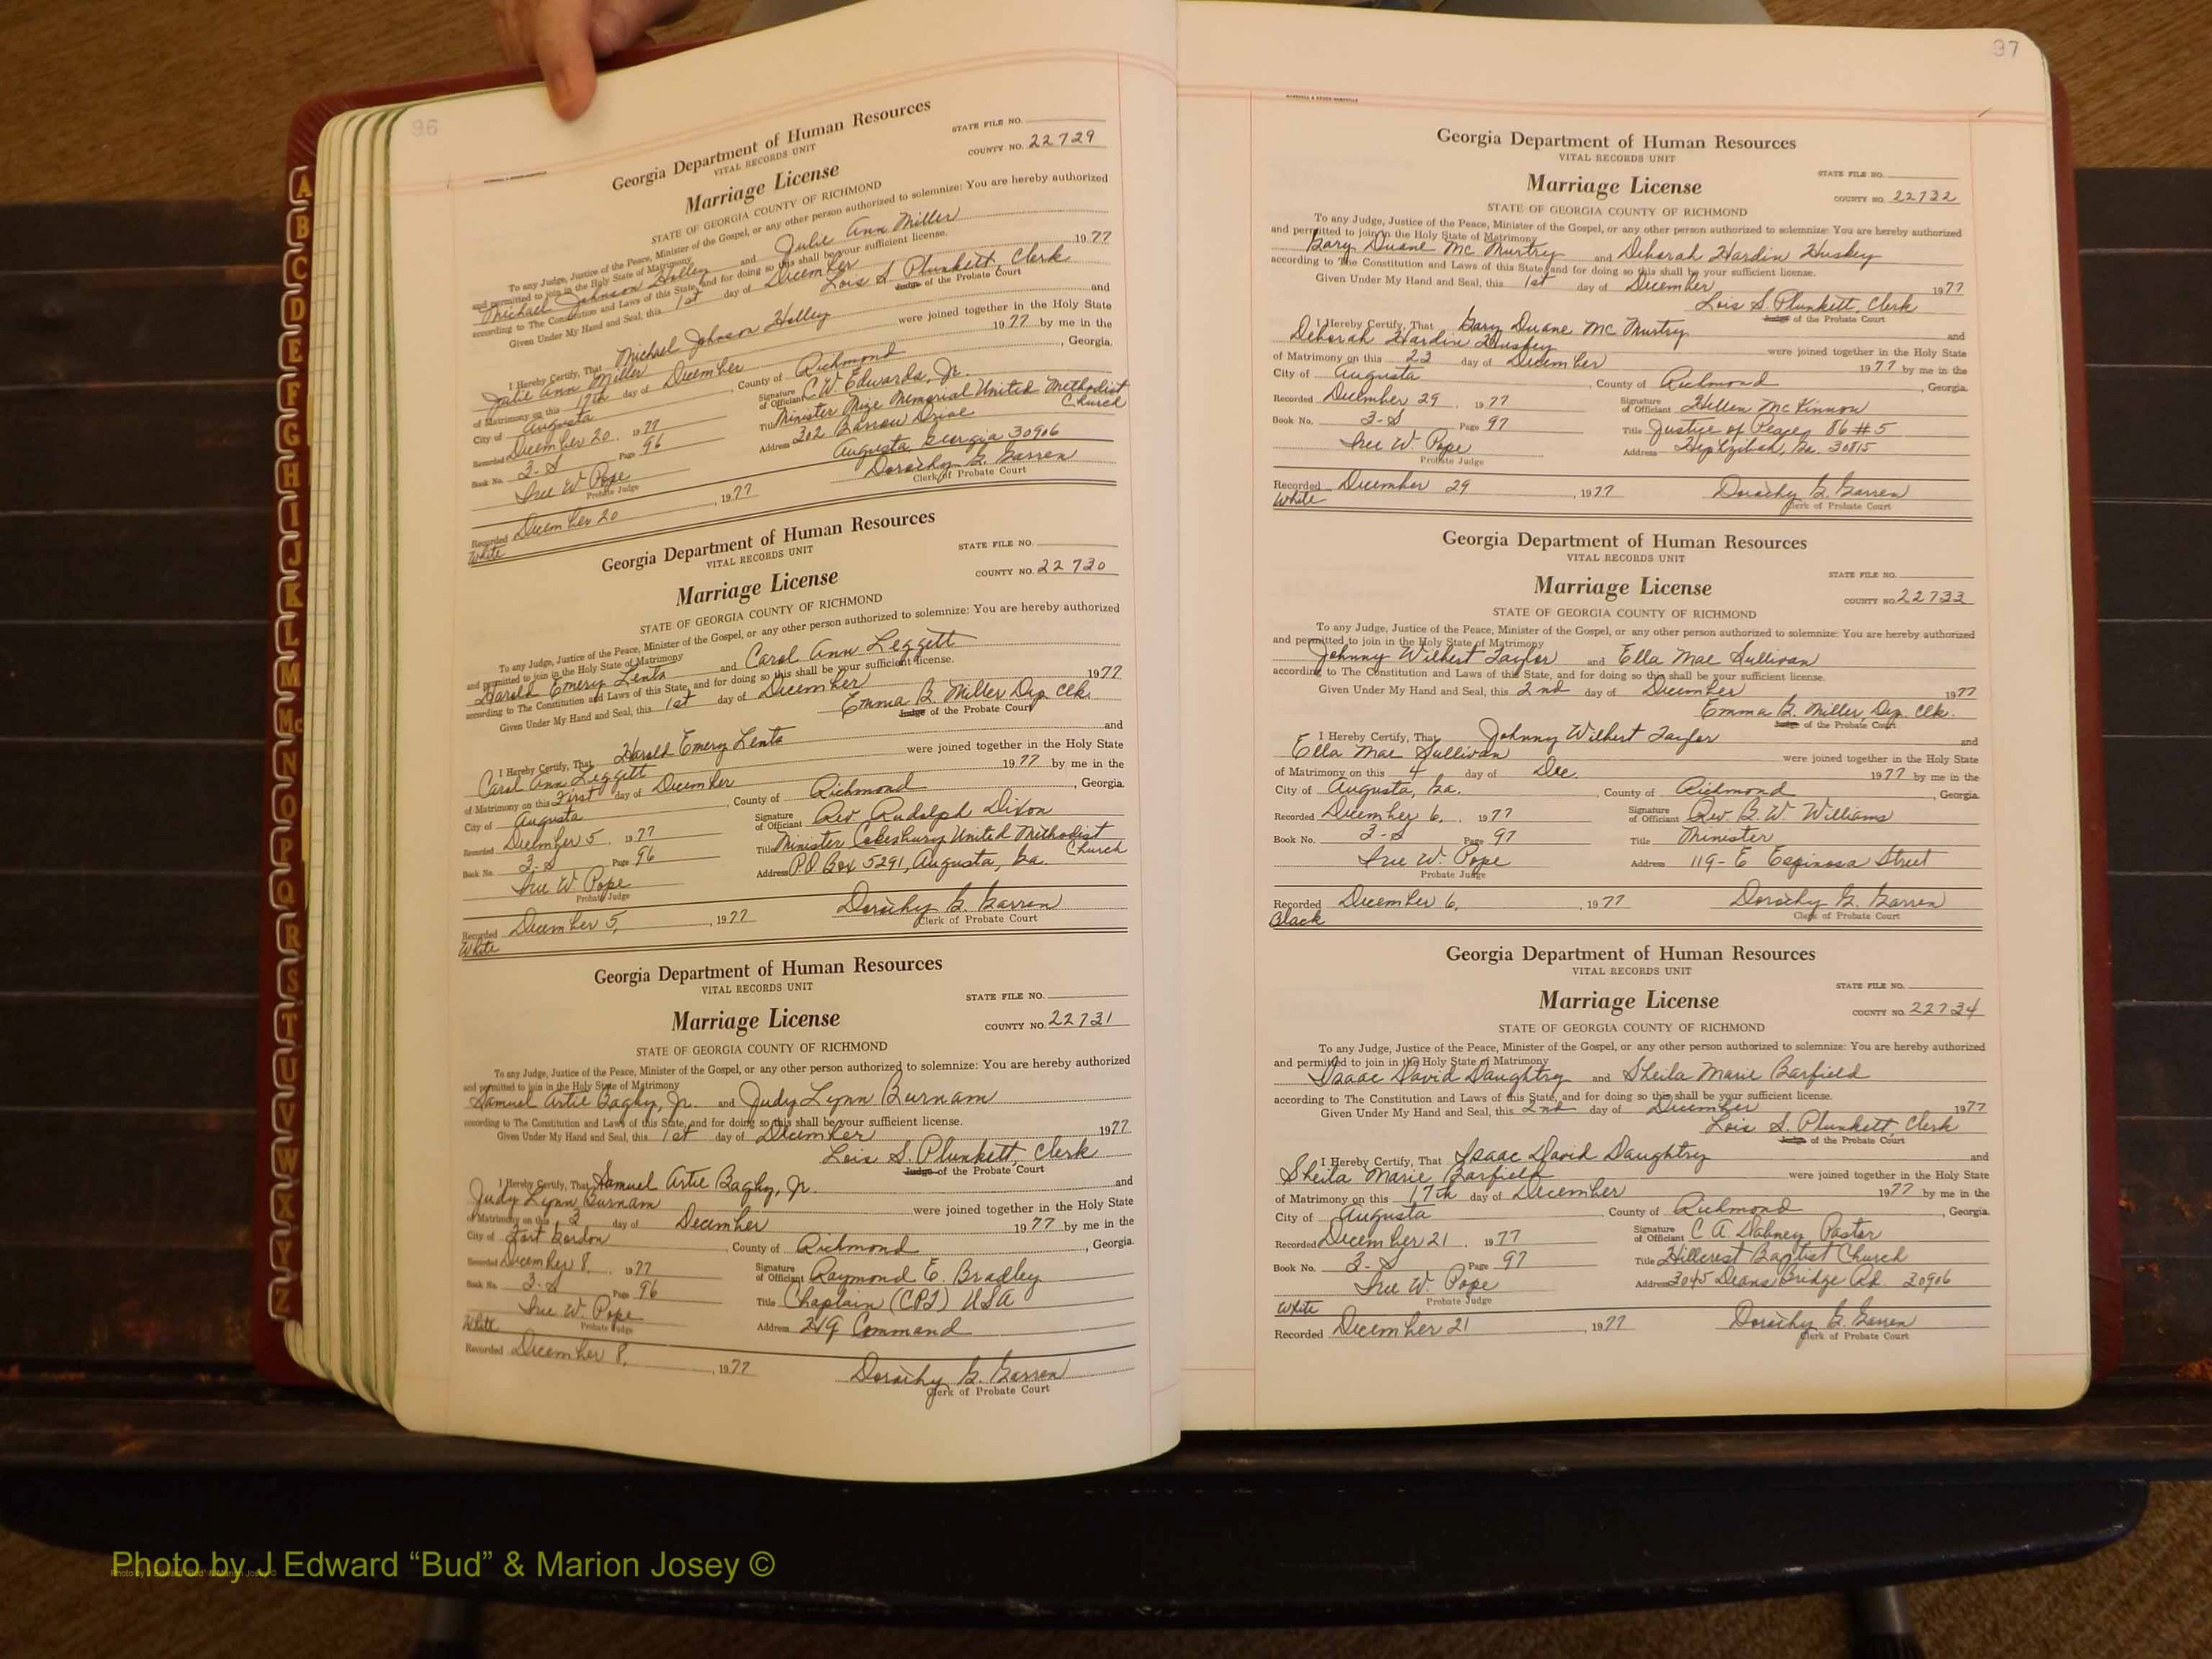 96
Georgia Department of Human Resources
VITAL RECORDS UNIT
STATE FILE NO.
Marriage License
COUNTY NO. 22729
STATE OF GEORGIA COUNTY OF RICHMOND
To any Judge, Justice of the Peace, Minister of the Gospel, or any other person authorized to solemnize: You are hereby authorized
and permitted to join in the Holy State of Matrimony
Michael Johnson Holley and Julie Ann Miller
according to The Constitution and Laws of this State, and for doing so this shall be your sufficient license.
Given Under My Hand and Seal, this 1st day of December 1977
Lois S. Plunkett, Clerk
Judge of the Probate Court
I Hereby Certify, That Michael Johnson Holley and
Julie Ann Miller were joined together in the Holy State
of Matrimony on this 17th day of December 1977 by me in the
City of Augusta, County of Richmond, Georgia.
Recorded December 20. 1977
Signature of Officiant C W Edwards, Jr.
Book No. 3-S Page 96
Title Minister Mize Memorial United Methodist Church
Iree W. Pope
Probate Judge
Address 302 Barrow Drive
Augusta, Georgia 30906
Recorded December 20, 1977
Dorothy G. Garren
Clerk of Probate Court
White
Georgia Department of Human Resources
VITAL RECORDS UNIT
STATE FILE NO.
Marriage License
COUNTY NO. 22730
STATE OF GEORGIA COUNTY OF RICHMOND
To any Judge, Justice of the Peace, Minister of the Gospel, or any other person authorized to solemnize: You are hereby authorized
and permitted to join in the Holy State of Matrimony
Harold Emery Lentz and Carol Ann Leggett
according to The Constitution and Laws of this State, and for doing so this shall be your sufficient license.
Given Under My Hand and Seal, this 1st day of December 1977
Emma B. Miller Dep. Clk.
Judge of the Probate Court
I Hereby Certify, That Harold Emery Lentz and
Carol Ann Leggett were joined together in the Holy State
of Matrimony on this First day of December 1977 by me in the
City of Augusta, County of Richmond, Georgia.
Recorded December 5. 1977
Signature of Officiant Rev Rudolph Dixon
Book No. 3-S Page 96
Title Minister Cokesbury United Methodist Church
Iree W. Pope
Probate Judge
Address P.O. Box 5291, Augusta, Ga.
Recorded December 5, 1977
Dorothy G. Garren
Clerk of Probate Court
White
Georgia Department of Human Resources
VITAL RECORDS UNIT
STATE FILE NO.
Marriage License
COUNTY NO. 22731
STATE OF GEORGIA COUNTY OF RICHMOND
To any Judge, Justice of the Peace, Minister of the Gospel, or any other person authorized to solemnize: You are hereby authorized
and permitted to join in the Holy State of Matrimony
Samuel Artie Bagby, Jr. and Judy Lynn Burnam
according to The Constitution and Laws of this State, and for doing so this shall be your sufficient license.
Given Under My Hand and Seal, this 1st day of December 1977
Lois S. Plunkett, Clerk
Judge of the Probate Court
I Hereby Certify, That Samuel Artie Bagby, Jr. and
Judy Lynn Burnam were joined together in the Holy State
of Matrimony on this 3 day of December 1977 by me in the
City of Fort Gordon, County of Richmond, Georgia.
Recorded December 8, 1977
Signature of Officiant Raymond E. Bradley
Book No. 3-S Page 96
Title Chaplain (CPT) USA
Iree W. Pope
Probate Judge
Address Command
White
Recorded December 8, 1977
Dorothy G. Garren
Clerk of Probate Court
97
Georgia Department of Human Resources
VITAL RECORDS UNIT
STATE FILE NO.
Marriage License
COUNTY NO. 22732
STATE OF GEORGIA COUNTY OF RICHMOND
To any Judge, Justice of the Peace, Minister of the Gospel, or any other person authorized to solemnize: You are hereby authorized
and permitted to join in the Holy State of Matrimony
Gary Duane Mc Murtry and Deborah Hardin Huskey
according to The Constitution and Laws of this State, and for doing so this shall be your sufficient license.
Given Under My Hand and Seal, this 1st day of December 1977
Lois S. Plunkett, Clerk
Judge of the Probate Court
I Hereby Certify, That Gary Duane Mc Murtry and
Deborah Hardin Huskey were joined together in the Holy State
of Matrimony on this 23 day of December 1977 by me in the
City of Augusta, County of Richmond, Georgia.
Recorded December 29, 1977
Signature of Officiant Hellen McKinnon
Book No. 3-S Page 97
Title Justice of Peace 86 #5
Iree W. Pope
Probate Judge
Address Hephzibah, Ga. 30815
Recorded December 29, 1977
Dorothy G. Garren
Clerk of Probate Court
White
Georgia Department of Human Resources
VITAL RECORDS UNIT
STATE FILE NO.
Marriage License
COUNTY NO. 22733
STATE OF GEORGIA COUNTY OF RICHMOND
To any Judge, Justice of the Peace, Minister of the Gospel, or any other person authorized to solemnize: You are hereby authorized
and permitted to join in the Holy State of Matrimony
Johnny Wilbert Taylor and Ella Mae Sullivan
according to The Constitution and Laws of this State, and for doing so this shall be your sufficient license.
Given Under My Hand and Seal, this 2nd day of December 1977
Emma B. Miller, Dep. Clk.
Judge of the Probate Court
I Hereby Certify, That Johnny Wilbert Taylor and
Ella Mae Sullivan were joined together in the Holy State
of Matrimony on this 4 day of Dec. 1977 by me in the
City of Augusta, Ga., County of Richmond, Georgia.
Recorded December 6, 1977
Signature of Officiant Rev. B. W. Williams
Book No. 3-S Page 97
Title Minister
Iree W. Pope
Probate Judge
Address 119-E Espinosa Street
Recorded December 6, 1977
Dorothy G. Garren
Clerk of Probate Court
Black
Georgia Department of Human Resources
VITAL RECORDS UNIT
STATE FILE NO.
Marriage License
COUNTY NO. 22734
STATE OF GEORGIA COUNTY OF RICHMOND
To any Judge, Justice of the Peace, Minister of the Gospel, or any other person authorized to solemnize: You are hereby authorized
and permitted to join in the Holy State of Matrimony
Isaac David Daughtry and Sheila Marie Barfield
according to The Constitution and Laws of this State, and for doing so this shall be your sufficient license.
Given Under My Hand and Seal, this 2nd day of December 1977
Lois S. Plunkett, Clerk
Judge of the Probate Court
I Hereby Certify, That Isaac David Daughtry and
Sheila Marie Barfield were joined together in the Holy State
of Matrimony on this 17th day of December 1977 by me in the
City of Augusta, County of Richmond, Georgia.
Recorded December 21, 1977
Signature of Officiant C A. Dabney Pastor
Book No. 3-S Page 97
Title Hillcrest Baptist Church
Iree W. Pope
Probate Judge
Address 3045 Deans Bridge Rd. 30906
White
Recorded December 21, 1977
Dorothy G. Garren
Clerk of Probate Court
A
B
C
D
E
F
G
H
I
J
K
L
M
Mc
N
O
P
Q
R
S
T
U
V
W
X
Y
Z
Photo by J Edward “Bud” & Marion Josey ©